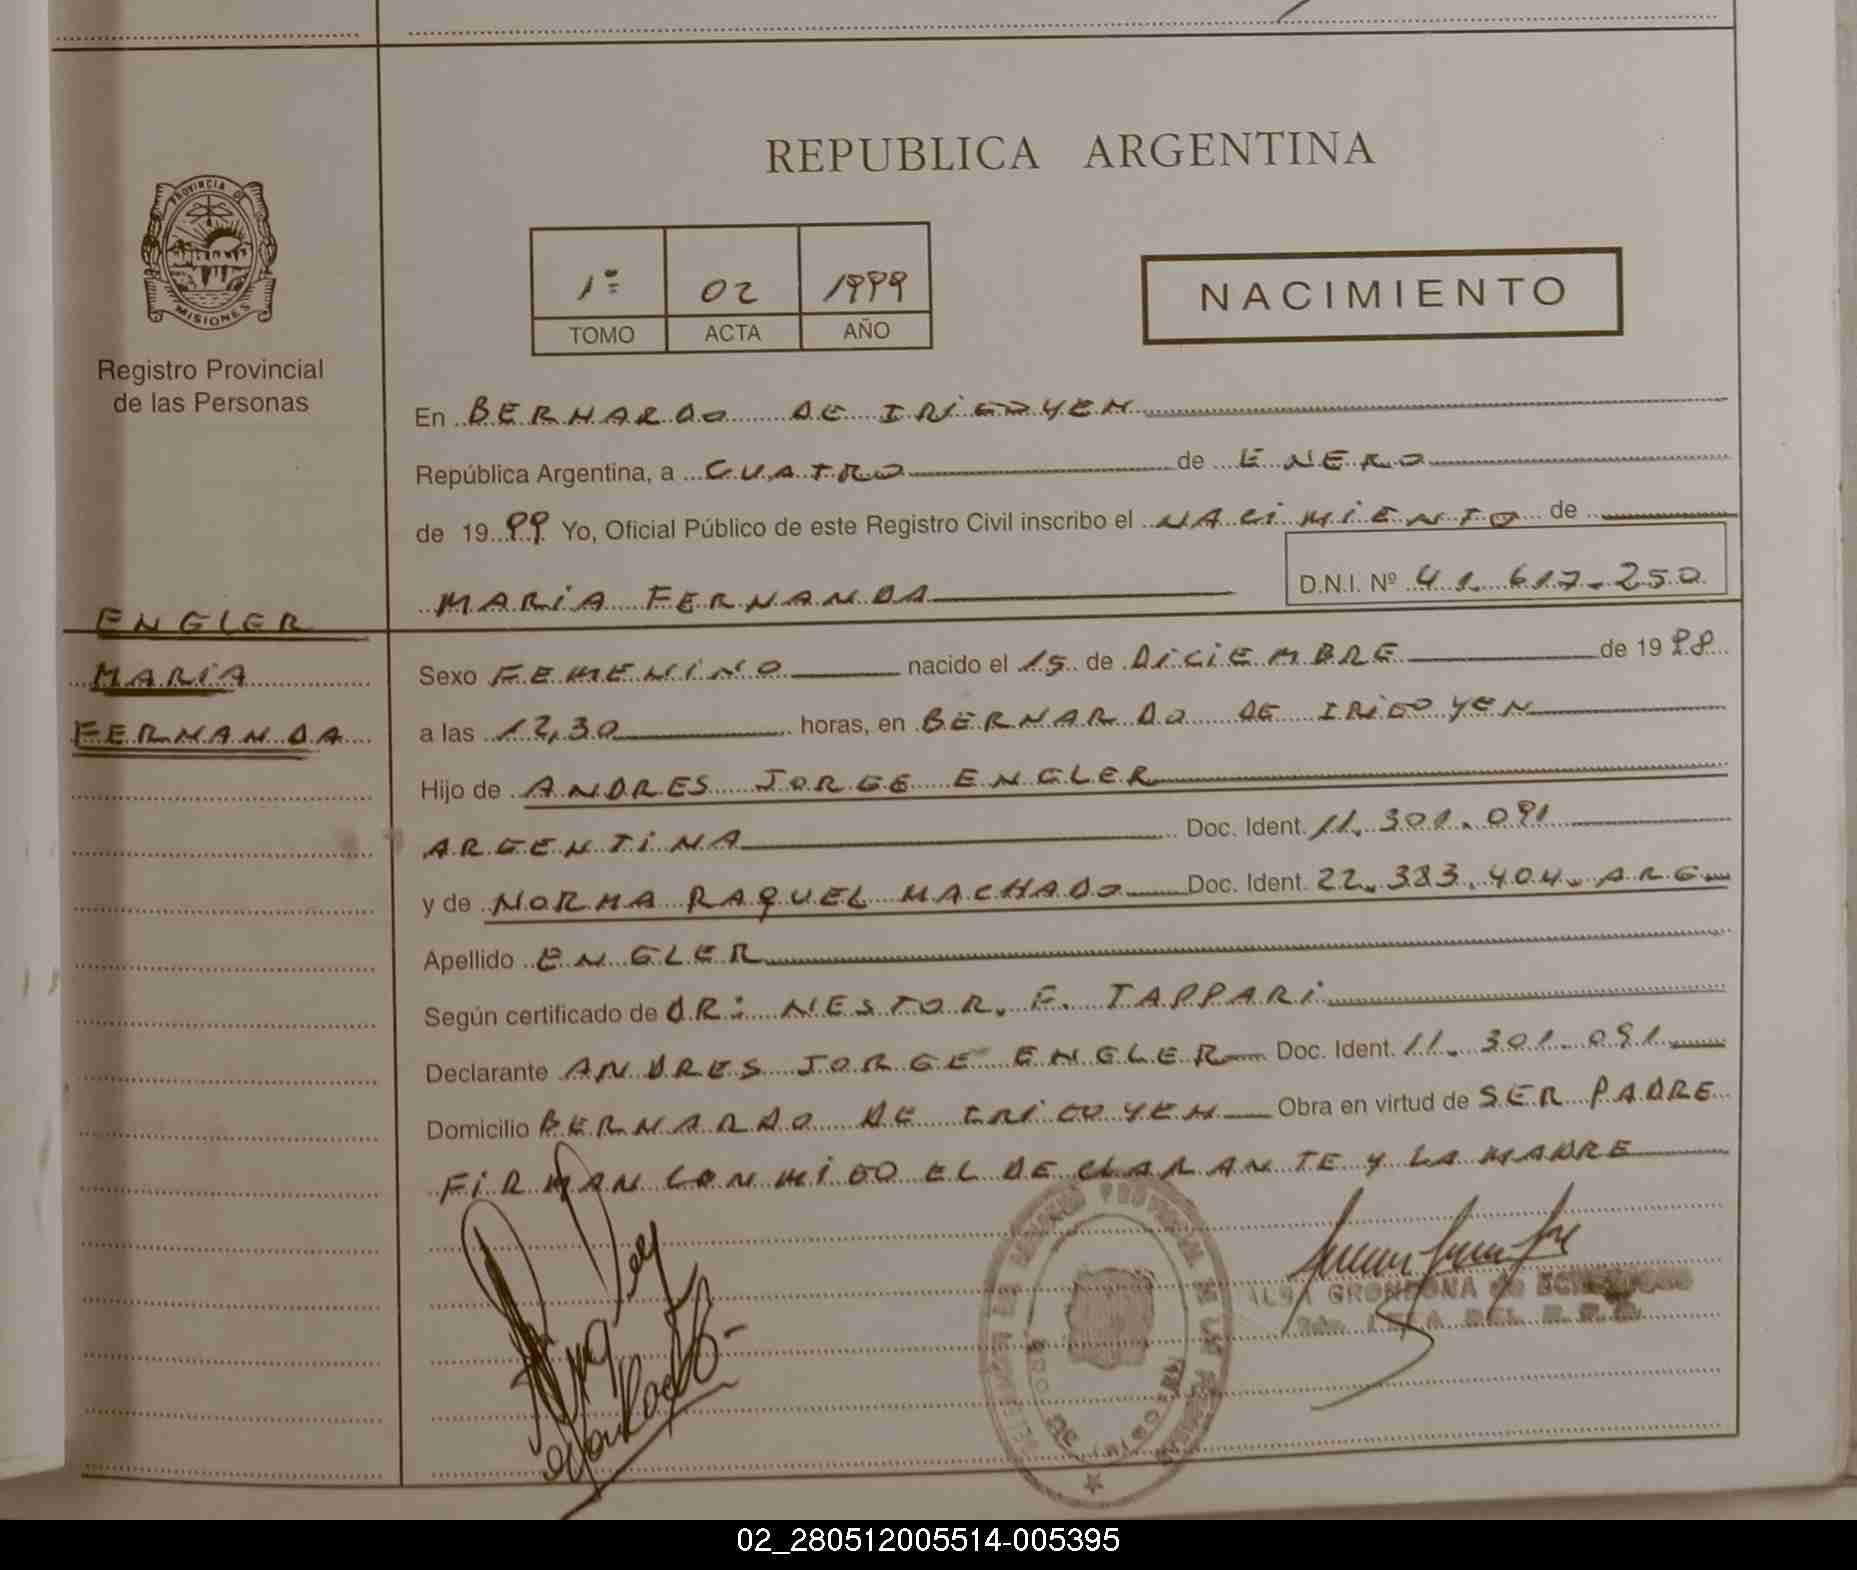 REPUBLICA ARGENTINA
PROVINCIA DE
MISIONES
Registro Provincial
de las Personas
1º 02 1999
TOMO ACTA AÑO
NACIMIENTO
En BERNARDO DE IRIGOYEN
República Argentina, a CUATRO de ENERO
de 1999 Yo, Oficial Público de este Registro Civil inscribo el NACIMIENTO de
MARIA FERNANDA D.N.I. Nº 41.617.250
ENGLER
MARIA
FERNANDA
Sexo FEMENINO nacido el 15 de DICIEMBRE de 1998
a las 12,30 horas, en BERNARDO DE IRIGOYEN
Hijo de ANDRES JORGE ENGLER
ARGENTINA Doc. Ident. 11.301.091
y de NORMA RAQUEL MACHADO Doc. Ident. 22.383.404. ARG
Apellido ENGLER
Según certificado de DR: NESTOR. F. TAPPARI
Declarante ANDRES JORGE ENGLER Doc. Ident. 11.301.091
Domicilio BERNARDO DE IRIGOYEN Obra en virtud de SER PADRE
FIRMAN CONMIGO EL DECLARANTE Y LA MADRE
GRONDONA de
DEL
02_280512005514-005395